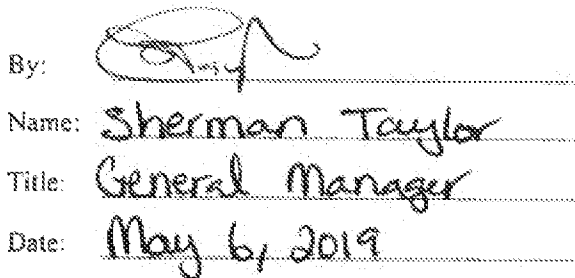 By:
Name: Sherman Taylor
Title: General Manager
Date: May 6, 2019